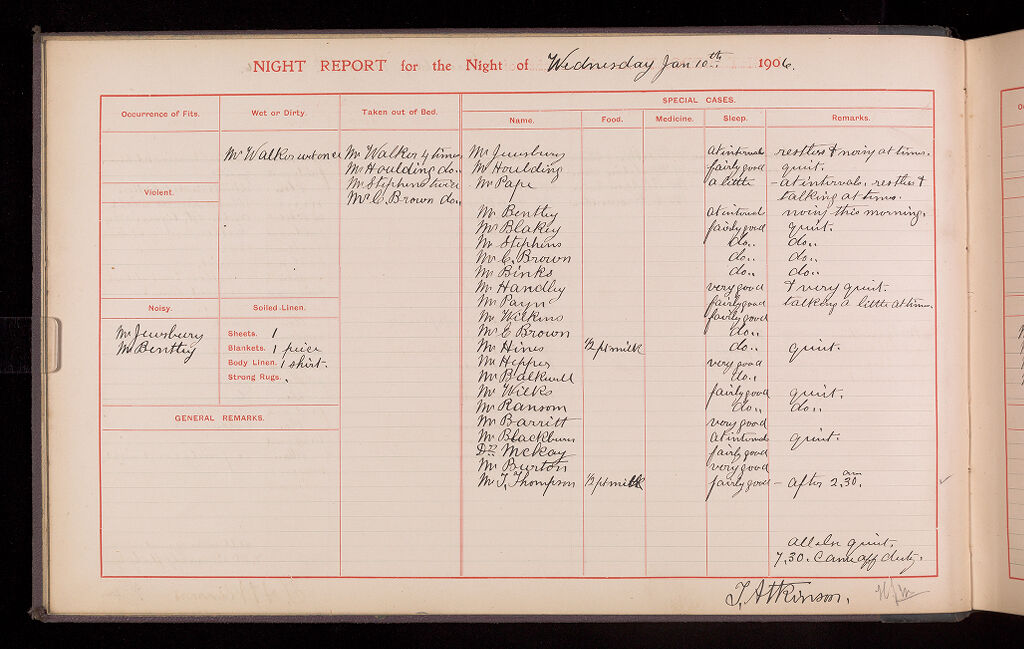 NIGHT REPORT for the Night of Wednesday Jan 10th 1906.
SPECIAL CASES.
Occurrence of Fits. Wet or Dirty. Taken out of Bed. Name. Food. Medicine. Sleep. Remarks.
Mr Walker wet once Mr Walker 4 times Mr Jewsbury at intervals restless & noisy at times.
Mr Houlding do.. Mr Houlding fairly good quiet.
Mr Stephens twice Mr Pape a little - at intervals. restless &
Violent. Mr C. Brown do.. talking at times.
Mr Bentley at intervals noisy this morning.
Mr Blakey fairly good quiet.
Mr Stephens do.. do..
Mr C. Brown do.. do..
Mr Binks do.. do..
Mr Handley very good & very quiet.
Mr Payn fairly good talking a little at times.
Noisy. Soiled Linen. Mr Wilkins fairly good
Mr Jewsbury Sheets. 1 Mr E Brown do..
Mr Bentley Blankets. 1 piece Mr Hines ½ pt milk do.. quiet.
Body Linen. 1 shirt. Mr Heppes very good
Strong Rugs. .. Mr Balkwill do..
Mr Wilks fairly good quiet.
Mr Ransom do.. do..
GENERAL REMARKS. Mr Barritt very good
Mr Blackburn at intervals quiet.
Dr. McKay fairly good
Mr Burton very good
Mr T. Thompson ½ pt milk fairly good - After 2.30. am
all else quiet.
7.30. Came off duty.
T. Atkinson.